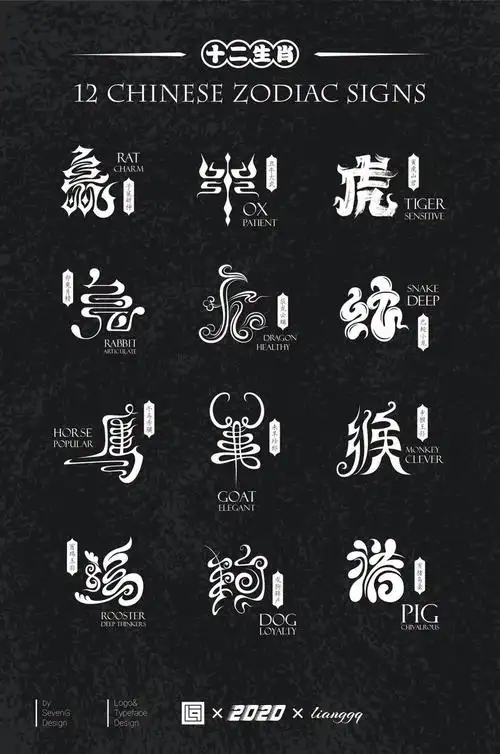 十二生肖
12 CHINESE ZODIAC SIGNS
鼠
RAT
CHARM
牛
OX
PATIENT
虎
TIGER
SENSITIVE
兔
RABBIT
ARTICULATE
龙
DRAGON
HEALTHY
蛇
SNAKE
DEEP
馬
HORSE
POPULAR
羊
GOAT
ELEGANT
猴
MONKEY
CLEVER
鸡
ROOSTER
DEEP THINKERS
狗
DOG
LOYALTY
猪
PIG
CHIVALROUS
by
SevenG
Design
Logo&
Typeface
Design
× 2020 × lianggq